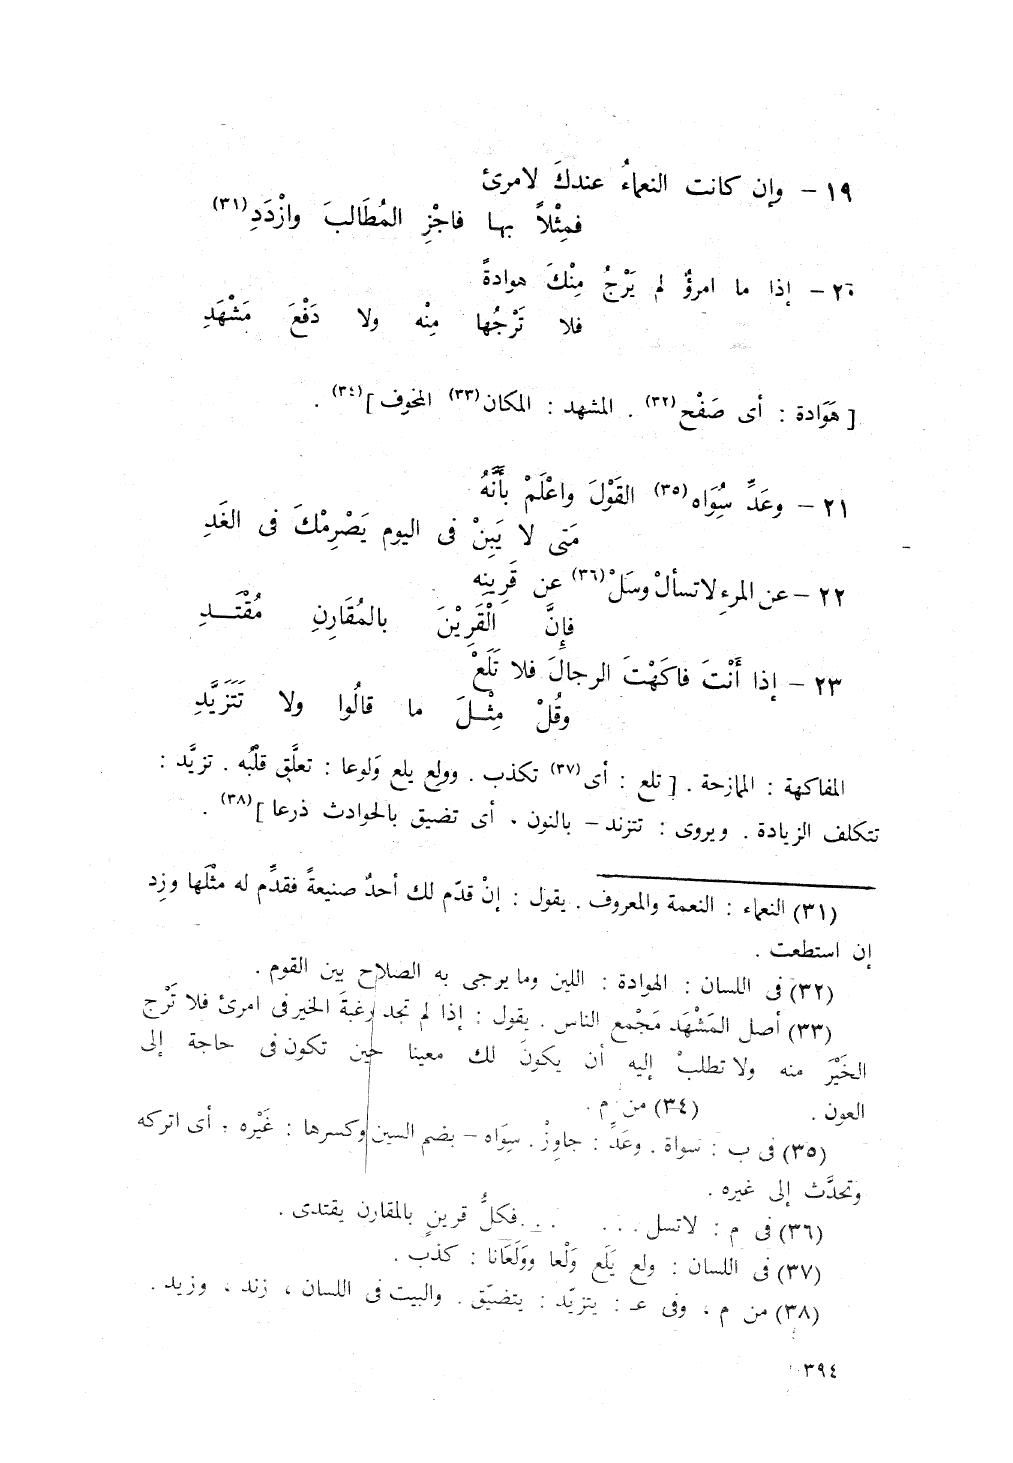 ١٩ – وإن كانت النعماءُ عندكَ لامرئ
فمِثْلاً بها فاجْزِ المُطَالبَ وازْدَدِ(٣١)
٢٠ – إذا ما امرؤٌ لم يَرْجُ مِنْكَ هوادةً
فلا تَرْجُها مِنْه ولا دَفْعَ مَشْهَدِ
[ هَوَادة : أى صَفْح(٣٢) . المشهد : المكان(٣٣) المخوف ](٣٤) .
٢١ – وعَدِّ سُِوَاه(٣٥) القَوْلَ واعْلَمْ بأَنَّهُ
مَتى لا يَبِنْ فى اليوم يَصْرِمْكَ فى الغَدِ
٢٢ – عن المرءِ لاتسألْ وسَلْ(٣٦) عن قَرِينِه
فإِنَّ الْقَرِيْنَ بالمُقَارِنِ مُقْتَــدِ
٢٣ – إذا أَنْتَ فاكَهْتَ الرجالَ فلا تَلَعْ
وقُلْ مِثْــلَ ما قالُوا ولا تَتَزَيَّدِ
المفاكهة : الممازحة . [ تلع : أى(٣٧) تكذب . وولع يلع وَلوعا : تعلَّق قلْبُه . تزيَّد :
تتكلف الزيادة . ويروى : تتزند – بالنون . أى تضيق بالحوادث ذرعا ](٣٨) .
(٣١) النعماء : النعمة والمعروف . يقول : إنْ قدّم لك أحدٌ صنيعةً فقدِّم له مثْلَها وزِد
إن استطعت .
(٣٢) فى اللسان : الهوادة : اللين وما يرجى به الصلاح بين القوم .
(٣٣) أصل المَشْهَد مَجْمع الناس . يقول : إذا لم تجد رغبةَ الخير فى امرئ فلا تَرْج
الخَيْرَ منه ولا تطلبْ إليه أن يكونَ لك معينا حين تكون فى حاجة إلى
العون . (٣٤) من م .
(٣٥) فى ب : سواة . وعَدِّ : جاوِزْ . سِوَاه – بضم السين وكسرها : غَيْره . أى اتركه
وتحدَّث إلى غيره .
(٣٦) فى م : لاتسل . . . . . . فكلُّ قرينٍ بالمقارن يقتدى .
(٣٧) فى اللسان : ولع يَلَع وَلْعا ووَلَعَانا : كذب .
(٣٨) من م ، وفى عـ : يتزيّد : يتضيّق . والبيت فى اللسان ، زند ، وزيد .
٣٩٤